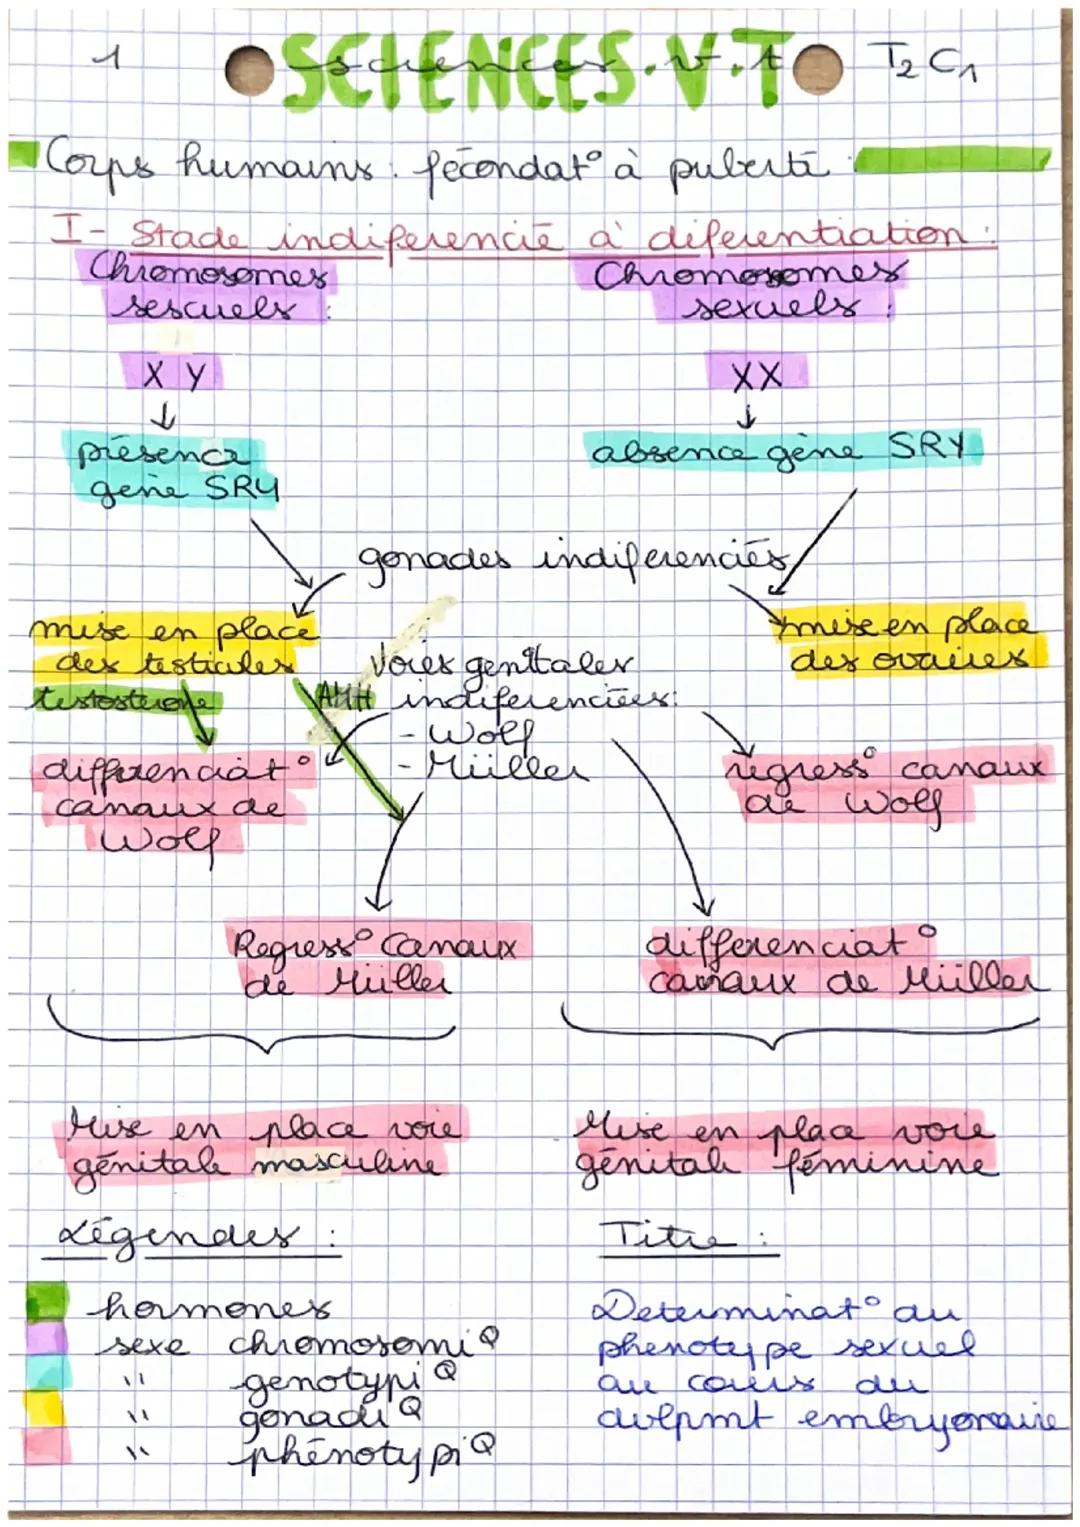 1 SCIENCES.V.T T2 C1
sciences v.t
Corps humains : fécondat° à puberté
I- Stade indiferencié à diferentiation :
Chromosomes Chromosomes
sescuels : sexuels :
X Y XX
présence absence gène SRY
gène SRY
gonades indiferenciés
mise en place mise en place
des testicules des ovaires
Voies genitales
testosterone AMH indiferenciées:
- Wolf
differenciat° - Müller regress° canaux
canaux de de Wolf
Wolf
Regress° Canaux differenciat°
de Müller canaux de Müller
Mise en place voie Mise en place voie
génitale masculine génitale féminine
Légendes : Titre :
hormones Determinat° du
sexe chromosomiQ phenotype sexuel
" genotypiQ au cours du
" gonadiQ dvlpmt embryonnaire
" phénotypiQ